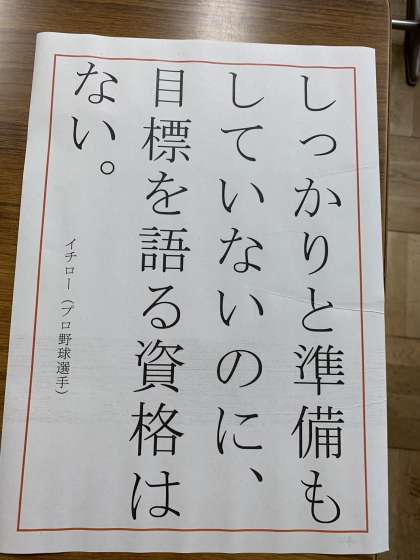 しっかりと準備も
していないのに、
目標を語る資格は
ない。
イチロー（プロ野球選手）